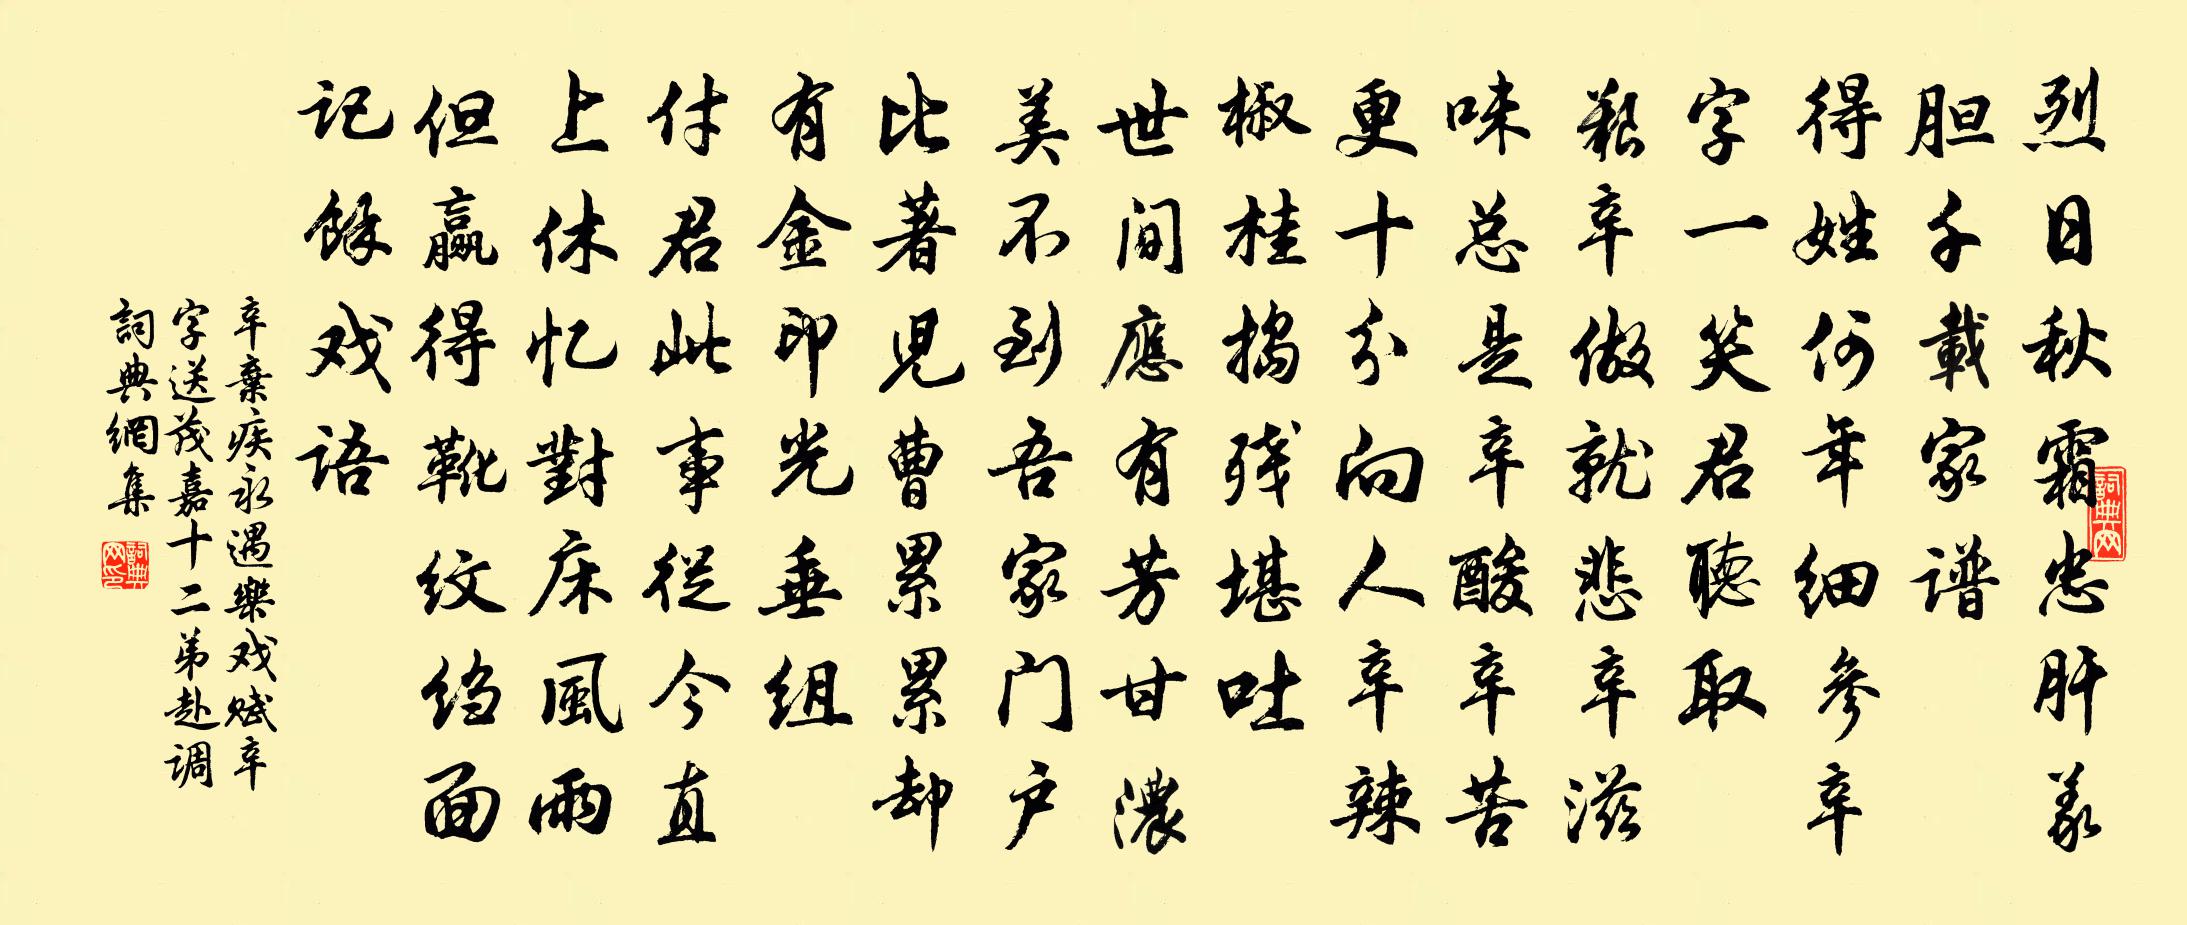 烈日秋霜忠肝義
胆千載家谱
得姓何年细参辛
字一笑君聽取
艱辛做就悲辛滋
味总是辛酸辛苦
更十分向人辛辣
椒桂搗残堪吐
世间應有芳甘濃
美不到吾家门户
比著児曹累累却
有金印光垂组
付君此事從今直
上休忆對床風雨
但赢得靴纹绉面
记餘戏语
辛棄疾永遇樂戏赋辛
字送茂嘉十二弟赴调
詞典網集
詞典网
詞典网印